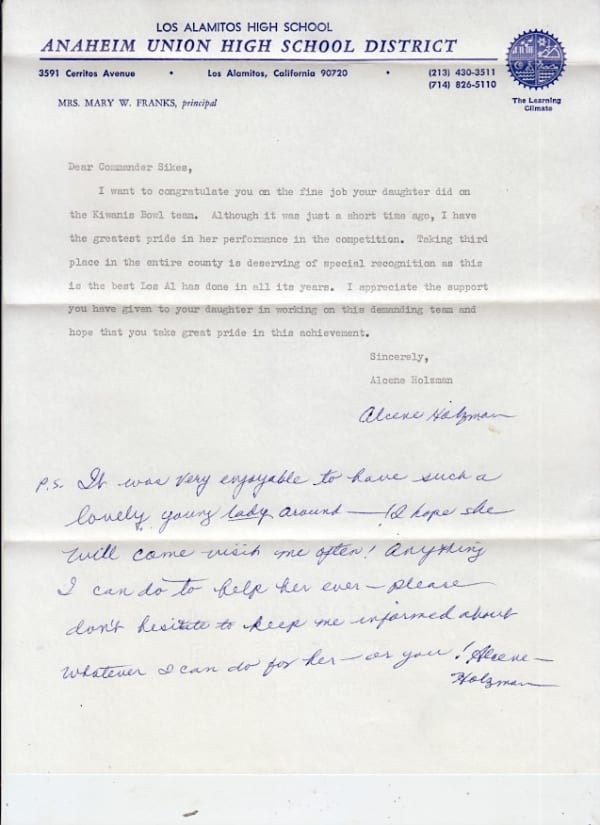 LOS ALAMITOS HIGH SCHOOL
ANAHEIM UNION HIGH SCHOOL DISTRICT
3591 Cerritos Avenue • Los Alamitos, California 90720 • (213) 430-3511
(714) 826-5110
MRS. MARY W. FRANKS, principal
The Learning
Climate
Dear Commander Sikes,
I want to congratulate you on the fine job your daughter did on
the Kiwanis Bowl team. Although it was just a short time ago, I have
the greatest pride in her performance in the competition. Taking third
place in the entire county is deserving of special recognition as this
is the best Los Al has done in all its years. I appreciate the support
you have given to your daughter in working on this demanding team and
hope that you take great pride in this achievement.
Sincerely,
Alcene Holzman
Alcene Holzman
P.S. It was very enjoyable to have such a
lovely young lady around — I hope she
will come visit me often! Anything
I can do to help her ever — please
don't hesitate to keep me informed about
whatever I can do for her — or you! Alcene
Holzman